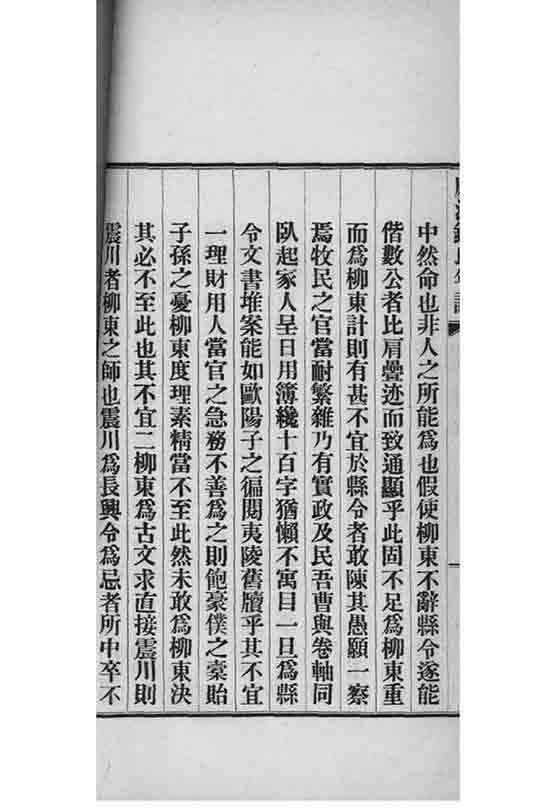 中然命也非人之所能爲也假使柳東不辭縣令遂能
偕數公者比肩疊迹而致通顯乎此固不足爲柳東重
而爲柳東計則有甚不宜於縣令者敢陳其愚願一察
焉牧民之官當耐繁雜乃有實政及民吾曹與卷軸同
臥起家人呈日用簿纔十百字猶懶不寓目一旦爲縣
令文書堆案能如歐陽子之徧閱夷陵舊牘乎其不宜
一理財用人當官之急務不善爲之則飽豪僕之橐貽
子孫之憂柳東度理素精當不至此然未敢爲柳東決
其必不至此也其不宜二柳東爲古文求直接震川則
震川者柳東之師也震川爲長興令爲忌者所中卒不